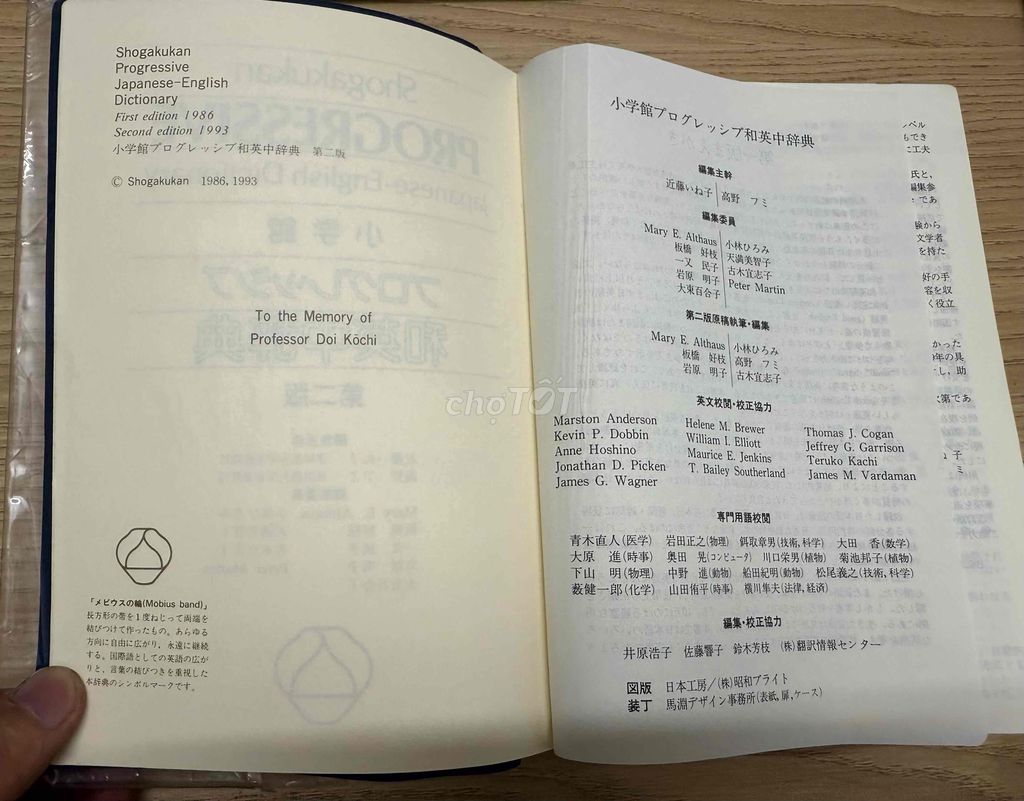 Shogakukan
Progressive
Japanese-English
Dictionary
First edition 1986
Second edition 1993
小学館プログレッシブ和英中辞典 第二版
© Shogakukan 1986, 1993
To the Memory of
Professor Doi Kōchi
「メビウスの輪(Möbius band)」
長方形の帯を1度ねじって両端を
結びつけて作ったもの。あらゆる
方向に自由に広がり，永遠に継続
する。国際語としての英語の広が
りと，言葉の結びつきを重視した
本辞典のシンボルマークです。
小学館プログレッシブ和英中辞典
編集主幹
近藤いね子 高野 フミ
編集委員
Mary E. Althaus 小林ひろみ
板橋 好枝 天満美智子
一又 民子 古木宜志子
岩原 明子 Peter Martin
大東百合子
第二版原稿執筆・編集
Mary E. Althaus 小林ひろみ
板橋 好枝 高野 フミ
岩原 明子 古木宜志子
英文校閲・校正協力
Marston Anderson Helene M. Brewer Thomas J. Cogan
Kevin P. Dobbin William I. Elliott Jeffrey G. Garrison
Anne Hoshino Maurice E. Jenkins Teruko Kachi
Jonathan D. Picken T. Bailey Southerland James M. Vardaman
James G. Wagner
専門用語校閲
青木直人(医学) 岩田正之(物理) 餌取章男(技術，科学) 大田 香(数学)
大原 進(時事) 奥田 晃(コンピュータ) 川口栄男(植物) 菊池邦子(植物)
下山 明(物理) 中野 進(動物) 船田紀明(動物) 松尾義之(技術，科学)
薮健一郎(化学) 山田侑平(時事) 横川隼夫(法律，経済)
編集・校正協力
井原浩子 佐藤響子 鈴木芳枝 (株)翻訳情報センター
図版 日本工房／(株)昭和ブライト
装丁 馬淵デザイン事務所(表紙，扉，ケース)
chợTỐT